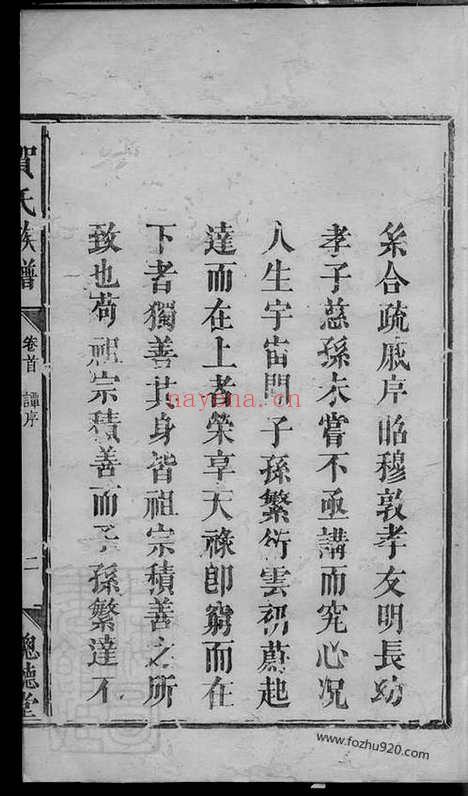 糸合疏戚序昭穆敦孝友明長幼
孝子慈孫未嘗不亟講而究心况
人生宇宙間子孫繁衍雲礽蔚起
達而在上者榮享天祿卽窮而在
下者獨善其身皆祖宗積善之所
致也苟祖宗積善而子孫繁達不
賀氏族譜
卷首 譚序
二
德堂
nayena.com
www.fozhu920.com